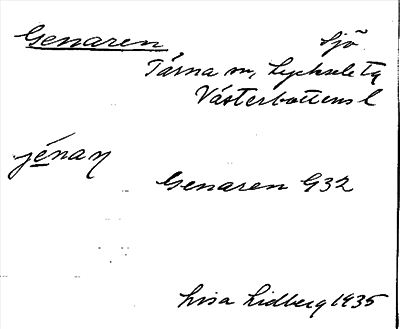 Genaren Sjö
Tärna sn, Lycksele tg
Västerbottens l
jénaɲ
Genaren G32
Lisa Lidberg 1935